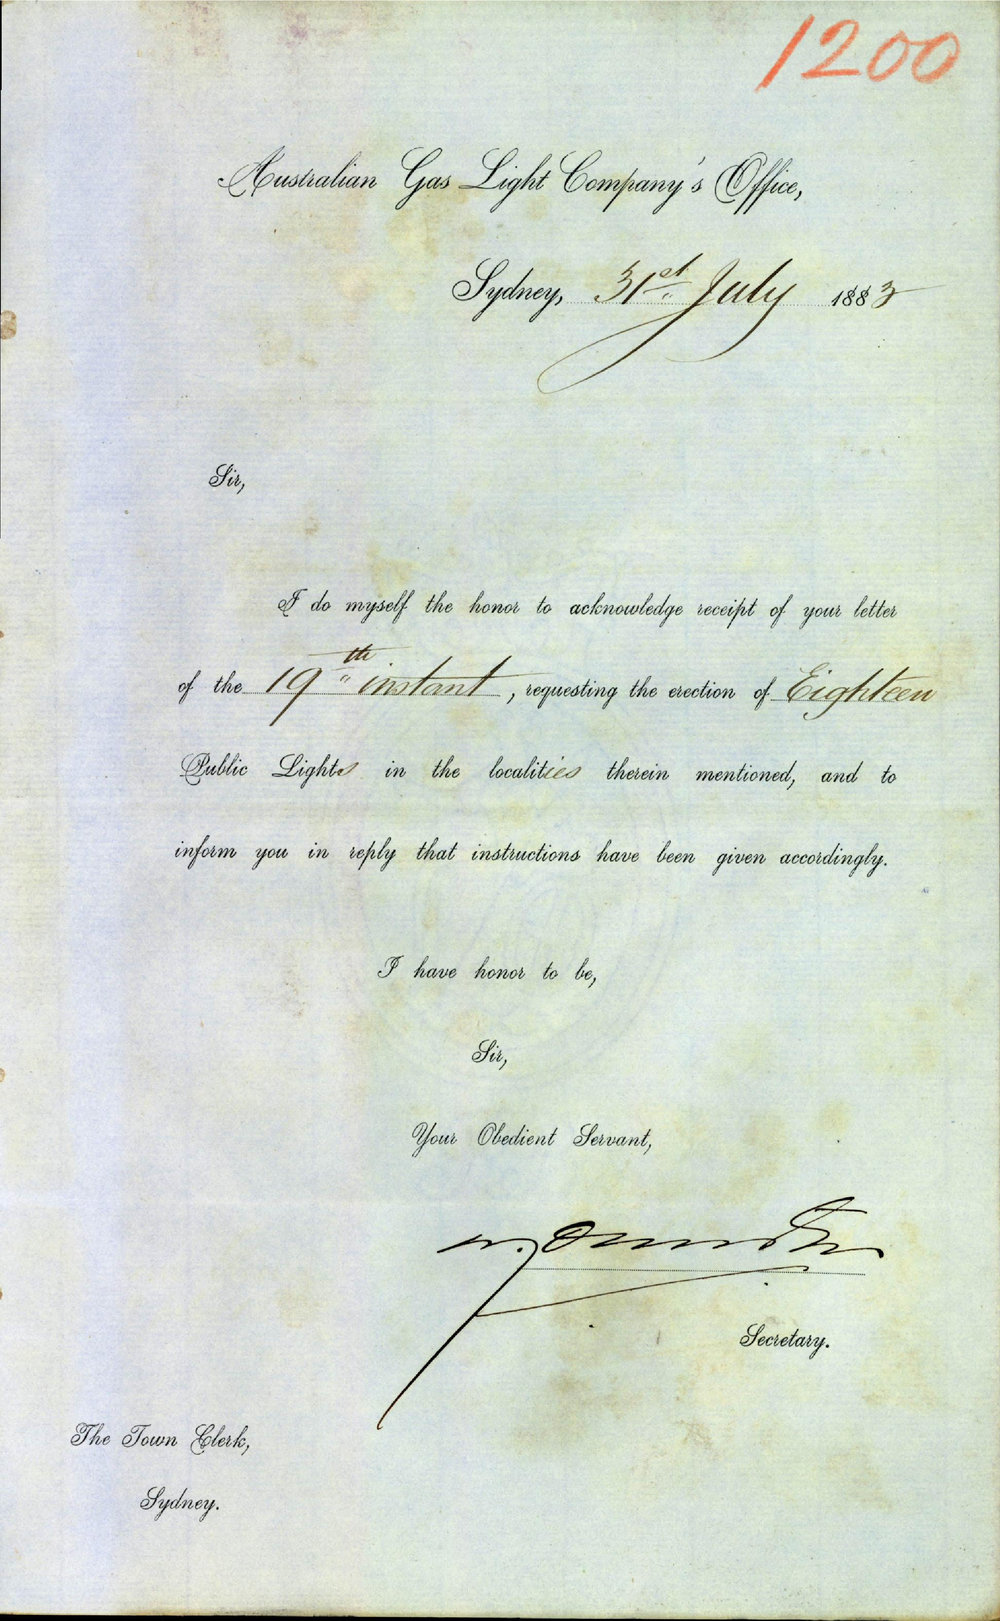 1200
Australian Gas Light Company's Office,
Sydney, 31st July 1883
Sir,
I do myself the honor to acknowledge receipt of your letter
of the 19th instant, requesting the erection of Eighteen
Public Lights in the localities therein mentioned, and to
inform you in reply that instructions have been given accordingly.
I have honor to be,
Sir,
Your Obedient Servant,
Secretary.
The Town Clerk,
Sydney.